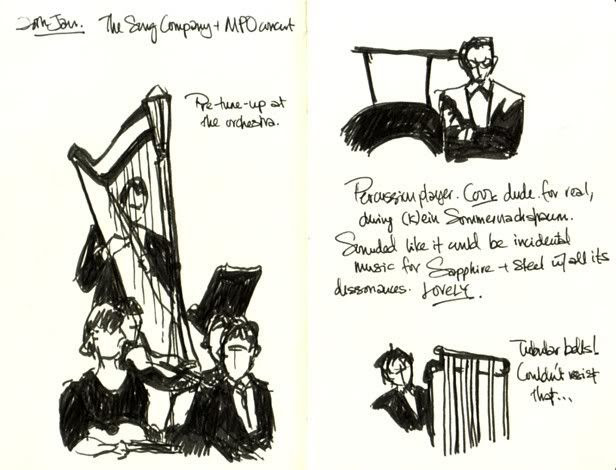 20th Jan. The Song Company + MPO concert
Pre-tune-up at
the orchestra.
Percussion player. Cool dude for real,
during (K)ein Sommernachstraum.
Sounded like it could be incidental
music for Sapphire + Steel w/ all its
dissonances. LOVELY.
Tubular bells!
Couldn't resist
that...